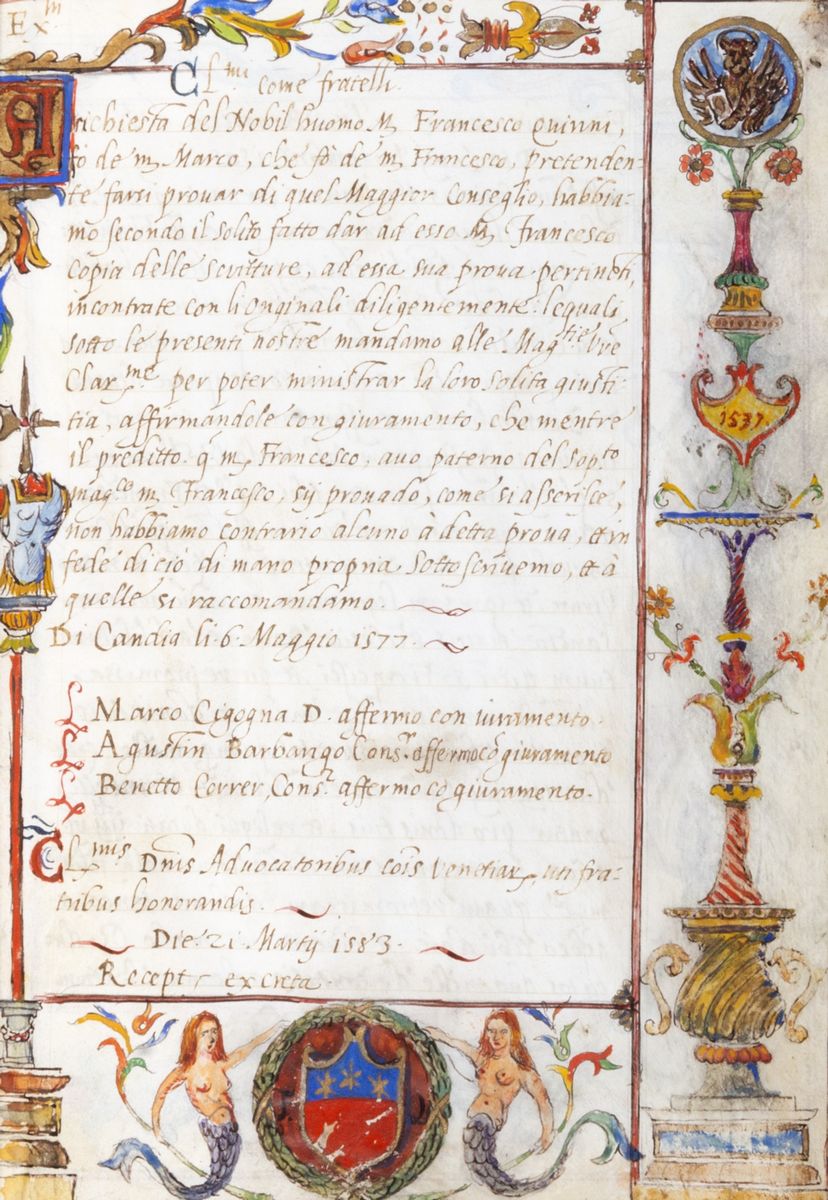 Ex^m
Cl^mi come fratelli.
A
richiesta del Nobil huomo M Francesco Quirini,
fo de m Marco, che fo de m Francesco, pretenden-
te farsi provar di quel Maggior Conseglio, habbia-
mo secondo il solito fatto dar ad esso M Francesco
copia delle scritture, ad essa sua prova pertineti,
incontrate con li originali diligentemente: lequali
sotto le presenti nostre mandamo alle Mag^tie Vre
Clar^me per poter ministrar la loro solita giusti-
tia, affirmandole con giuramento, che mentre
il preditto q m Francesco, avo paterno del sop^to
mag^co m Francesco, sij provado, come si asserisce,
non habbiamo contrario alcuno à detta prova, et in
fede di ciò di mano propria sottoscrivemo, et à
quelle si raccomandamo.
Di Candia li 6 Maggio 1577.
Marco Cigogna D. affermo con iuramento.
Agustin Barbarigo Cons^r affermo cõ giuramento
Benetto Correr, Cons^r affermo cõ giuramento.
Cl^mis Dnis Advocatoribus cõis Venetiar, uti fra-
tribus honorandis.
Die 21 Martij 1583.
Recept excreta
1537.